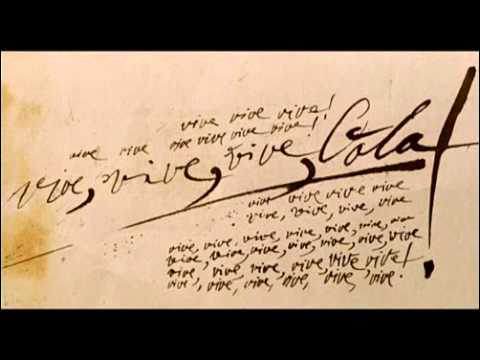 vive vive vive!
vive vive vive vive vive vive!
vive, vive, vive, Cola!
vive vive vive vive
vive, vive, vive, vive
vive, vive, vive, vive, vive, vive, vive
vive, vive, vive, vive, vive, vive, vive, vive
vive, vive, vive, vive, vive vive vive!
vive, vive, vive, vive, vive, vive, vive!